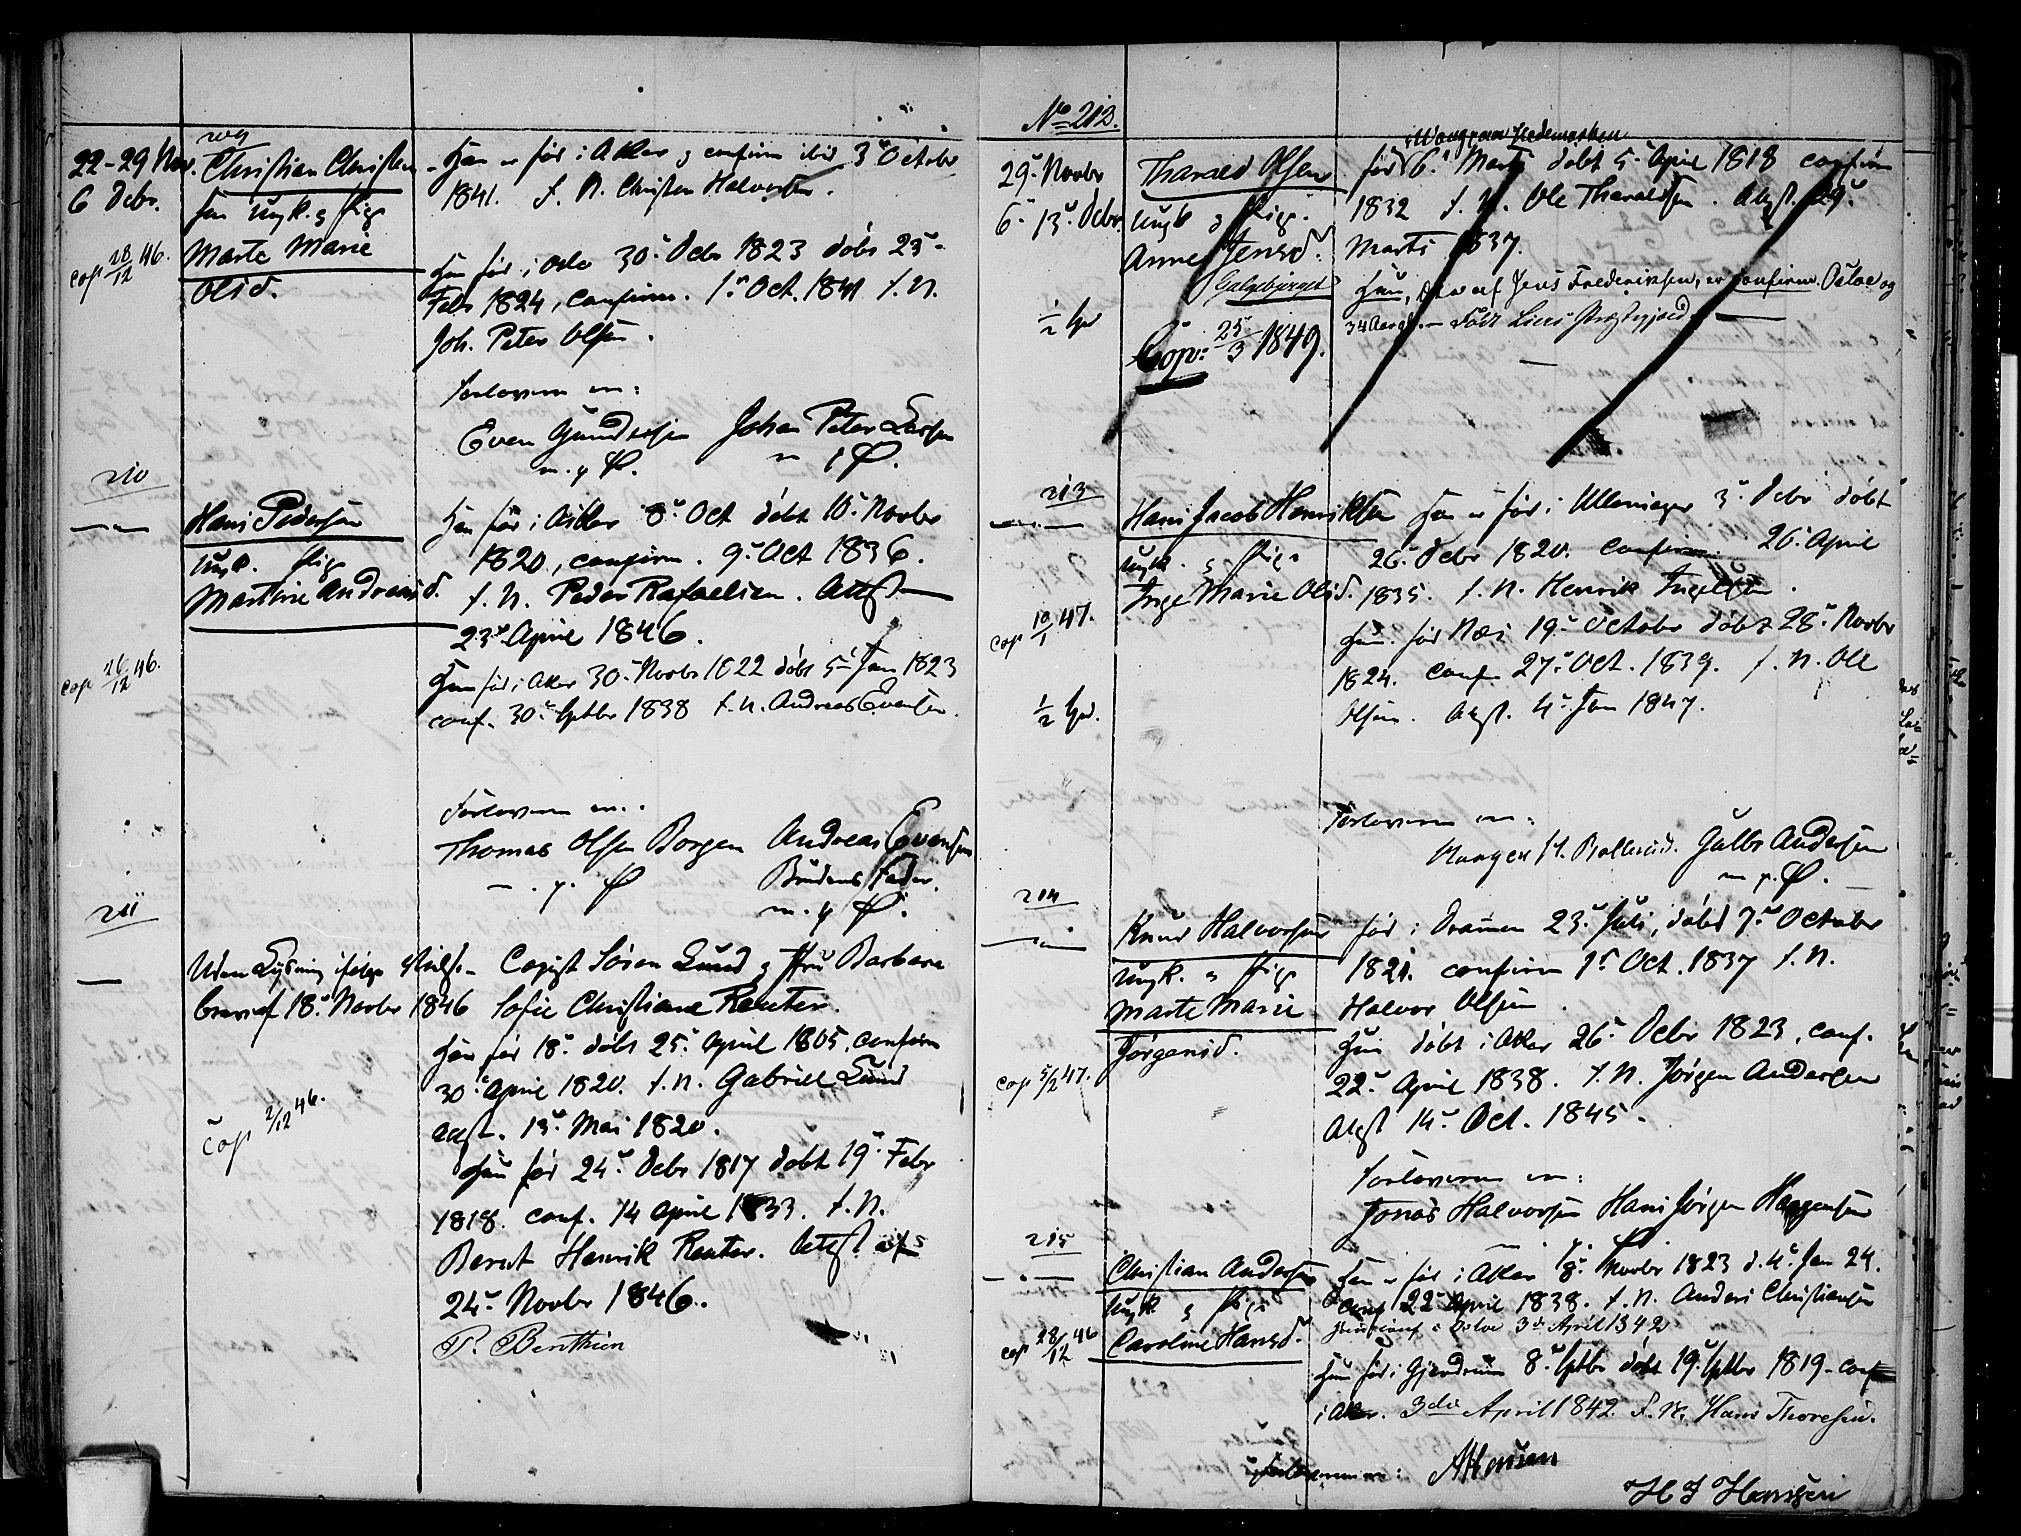 209
22-29 Nov.
6 Debr.
Cop 28/12 46.
Christian Christen
sen Ungk. & Pige
Marte Marie
Olsd.
Han er før i Aker & confirm ibid 3 October
1841. f. N. Christen Halvorsen.
Hun før i Oslo 30 Debr 1823 döbt 23
Febr 1824, confirm. 1 Oct. 1841 f. N.
Joh. Peter Olsen.
Forlovern er:
Even Gundersen Johan Peter Larsen
m. p. P.
210
Cop 26/12 46.
Hans Pedersen
Ungk. Pige
Martine Andreasd.
Han før i Asker 8 Oct döbt 10 Novbr
1820, confirm. 9 Oct 1836.
f. N. Peder Rafaelsen. Attest
23 April 1846.
Hun før i Aker 30 Novbr 1822 döbt 5 Jan 1823
conf. 30 Septbr 1838 f. N. Andreas Evensen.
Forlovern er:
Thomas Olsen Borgen Andreas Evensen
Brudens Fader.
m. p. P.
211
Uden Lysning ifølge
brev af 18 Novbr 1846
Cop 2/12 46.
Copist Sören Lund & Fru Barbara
Sofie Christiane Reuter.
Han før 18 döbt 25 April 1805, confirm
30 April 1820. f. N. Gabriel Lund
Attest. 13 Mai 1820.
Hun før 24 Debr 1817 döbt 19 Febr
1818. conf. 14 April 1833. f. N.
Bernt Henrik Reuter. Attest af
24 Novbr 1846.
P. Benthien
No 212.
29 Novbr
6 13 Debr
1/2
Tharald Olsen
Ungk & Pige.
Anne Jensd.
Galgebjerget
Copv: 25/3 1849.
i Wang paa Hedemarken
før 6 Marts döbt 5 April 1818 confirm
1832 f. N. Ole Tharaldsen. Attest. 29
Marts 1837.
Hun, Datter af Jens Frederiksen, er confirm. Osloe og
34 Aar gl. — Født Liers Præstegjeld. —
213
Cop 10/1 47.
1/2
Hans Jacob Henriksen
Ungk. & Pige
Inge Marie Olsd.
Han er før i Ullensager 3 Debr döbt
26 Debr 1820. confirm 26 April
1835. f. N. Henrik Ingelsen.
Hun før Næs 19 October döbt 28 Novbr
1824. conf. 27 Oct. 1839. f. N. Ole
Olsen. Attest. 4 Jan 1847.
Forlovern er:
Gulbr Andersen
m. p. P.
214
Cop 5/2 47.
Knud Halvorsen
Ungk. & Pige
Marte Marie
Jörgensd.
før i Dramen 23 Juli, döbt 7 October
1821. confirm 1 Oct. 1837 f. N.
Halvor Olsen.
Hun döbt i Aker 26 Debr 1823, conf.
22 April 1838. f. N. Jörgen Andersen
Attest 14 Oct. 1845.
Forlovern er:
Jonas Halvorsen Hans Jörgen Haagensen
215
Cop 28/12 46
Christian Andersen
Ungk & Pige
Caroline Hansd.
Han er før i Aker 8 Novbr 1823 d. 4 Jan 24.
conf 22 April 1838. f. N. Anders Christiansen
Osloe 3de April 1842
Hun før i Gjerdrum 8 Septbr döbt 19 Septbr 1819 conf
i Aker. 3die April 1842. f. N. Hans Thoresen.
Forloverne er: A Hansen
H J Hansen